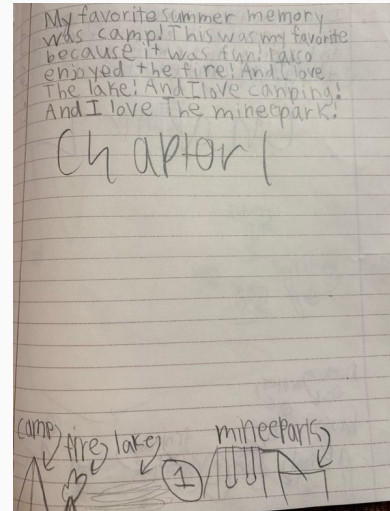 My favorite summer memory
was camp! This was my favorite
because it was fun! I also
enjoyed the fire! And I love
The lake! And I love camping!
And I love The mineepark!
Chaptor 1
camp fire lake mineepark
1